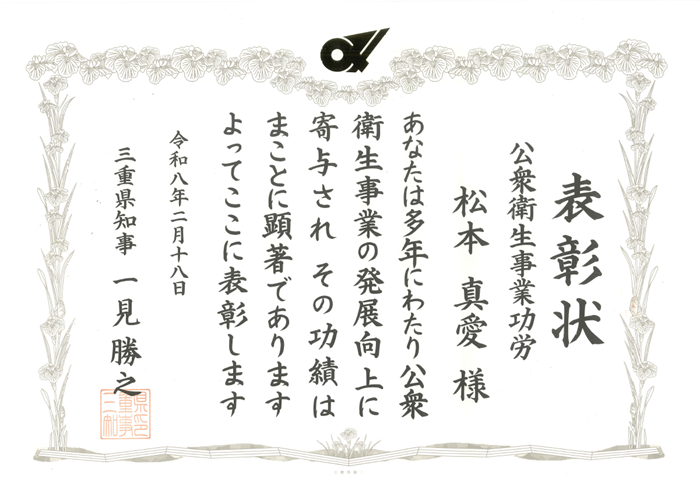 表彰状
公衆衛生事業功労
松本 真愛 様
あなたは多年にわたり公衆
衛生事業の発展向上に
寄与され その功績は
まことに顕著であります
よってここに表彰します
令和八年二月十八日
三重県知事 一見 勝之